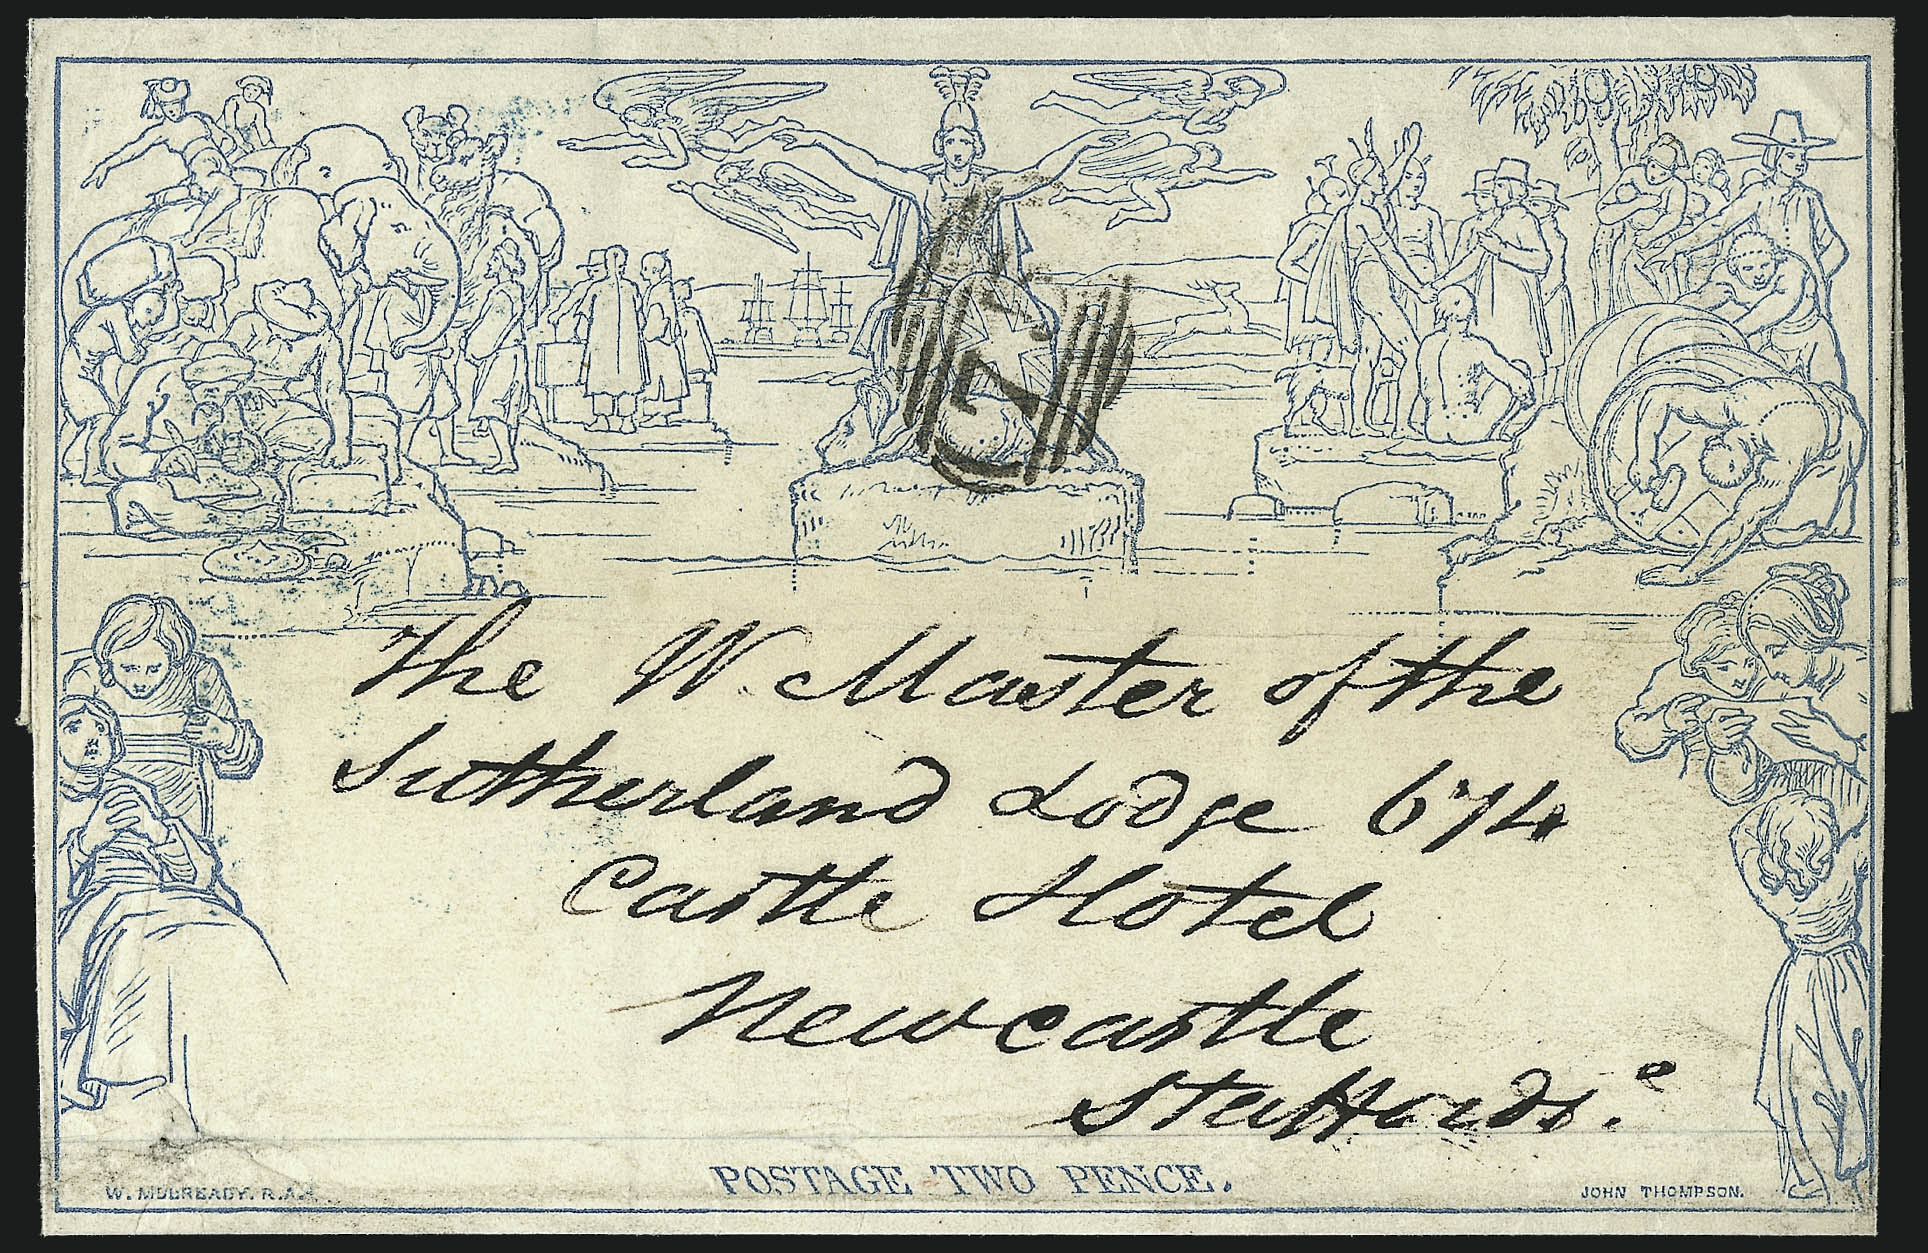 17
The W. Master of the
Sutherland Lodge 674
Castle Hotel
Newcastle
Staffords.e
POSTAGE TWO PENCE.
W. MULREADY. R.A.
JOHN THOMPSON.